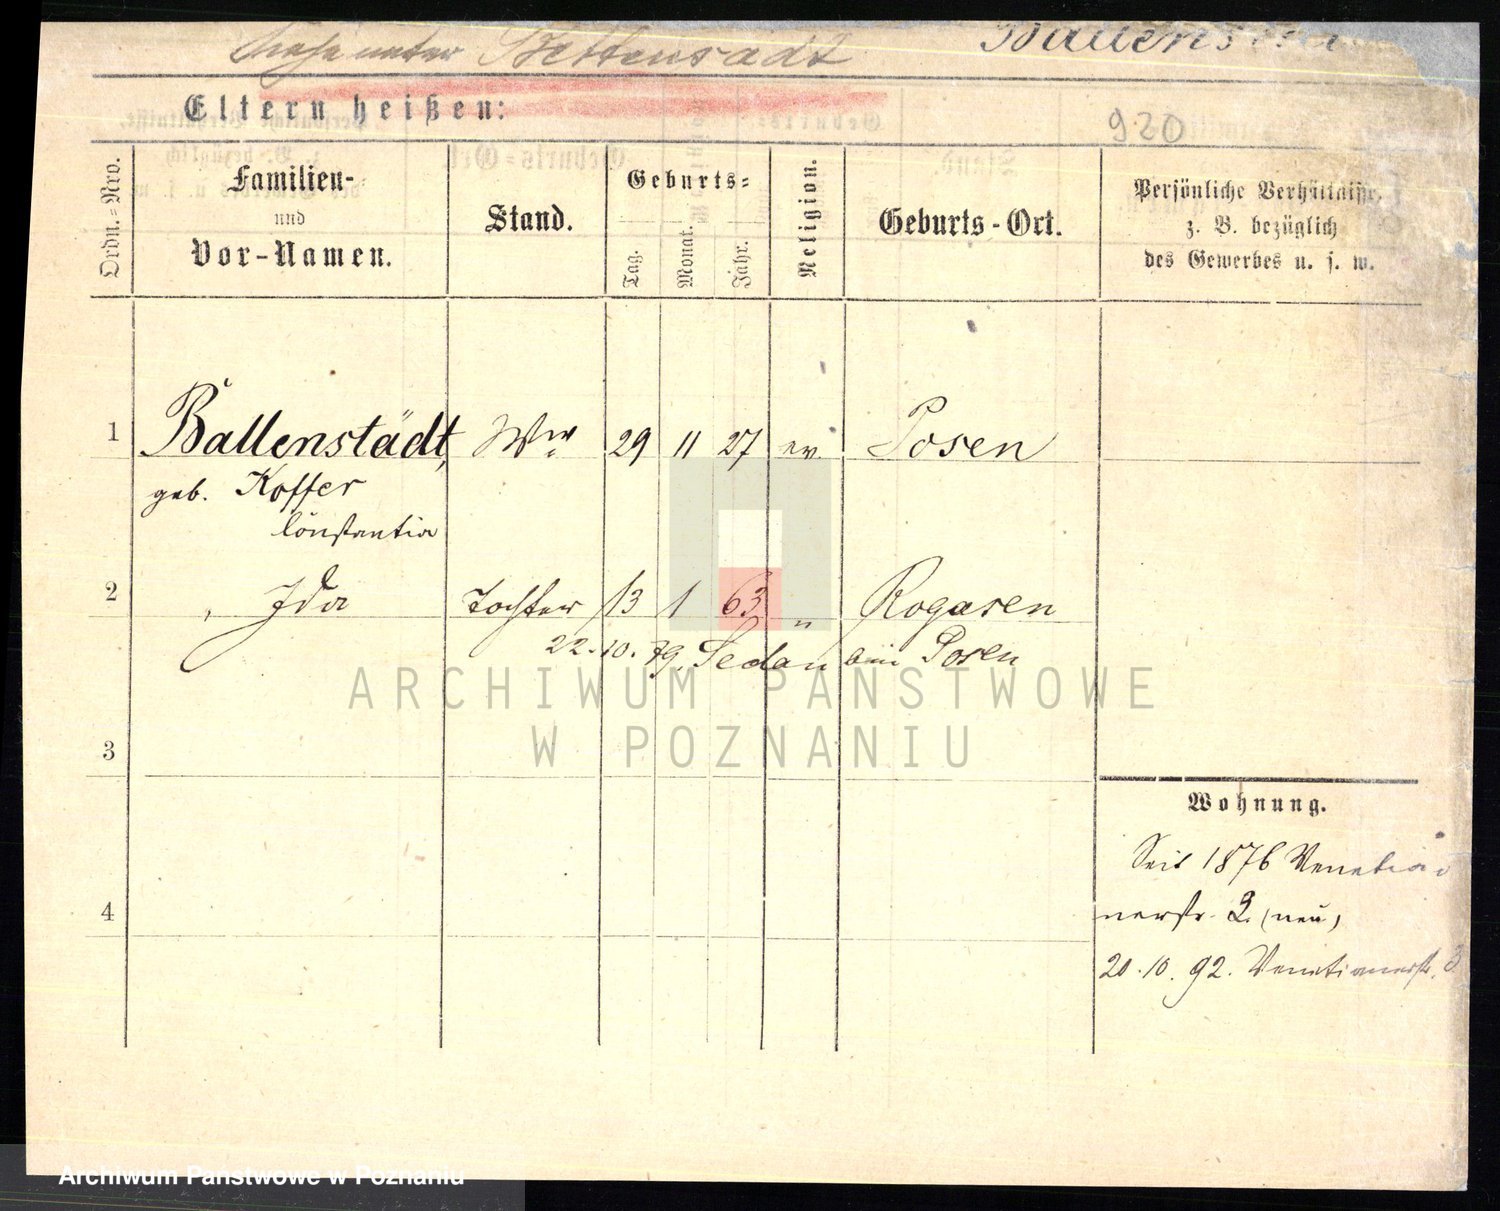 Siehe unter Bettenstadt
Ballenstädt
Eltern heißen:
920
Ordn.=Nro.
Familien-
und
Vor-Namen.
Stand.
Geburts=
Tag.
Monat.
Jahr.
Religion.
Geburts-Ort.
Persönliche Verhältnisse,
z. B. bezüglich
des Gewerbes u. s. w.
1 Ballenstädt, Wwe. 29 11 27 ev. Posen
geb. Koffer
Constantia
2 Ida Tochter 13 1 63 " Rogasen
22.10.79. Sedan bei Posen
ARCHIWUM PAŃSTWOWE
W POZNANIU
3
Wohnung.
Seit 1876 Venetia-
nerstr. 2. (neu)
4
20.10.92. Venetianerstr. 3
Archiwum Państwowe w Poznaniu